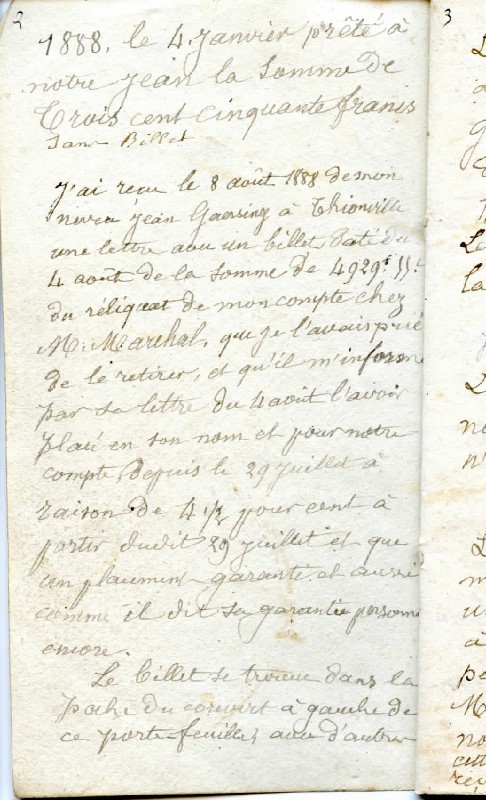 2
1888. le 4 Janvier prêté à
notre jean la Somme de
Trois cent cinquante francs
Sans Billet
J'ai recu le 8 août 1888 de mon
neveu jean Gaersing à Thionville
une lettre avec un billet daté du
4 août de la somme de 4929f 55c
du réliquat de mon compte chez
M. Maréchal, que je l'avais prié
de le retirer, et qu'il m'informe
par sa lettre du 4 août l'avoir
placé en son nom et pour notre
compte, depuis le 29 juillet à
raison de 4 1/2 pour cent à
partir dudit 29 juillet et que
un placement garantie et aussi
comme il dit sa garantie personne
encore.
Le billet se trouve dans la
poche du couvert à gauche de
ce porte-feuille, avec d'autres
3